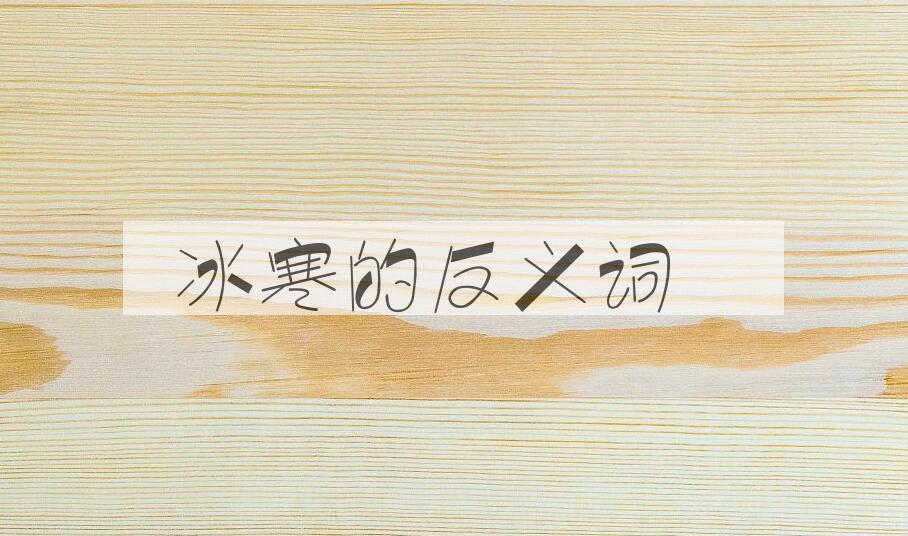 冰寒的反义词